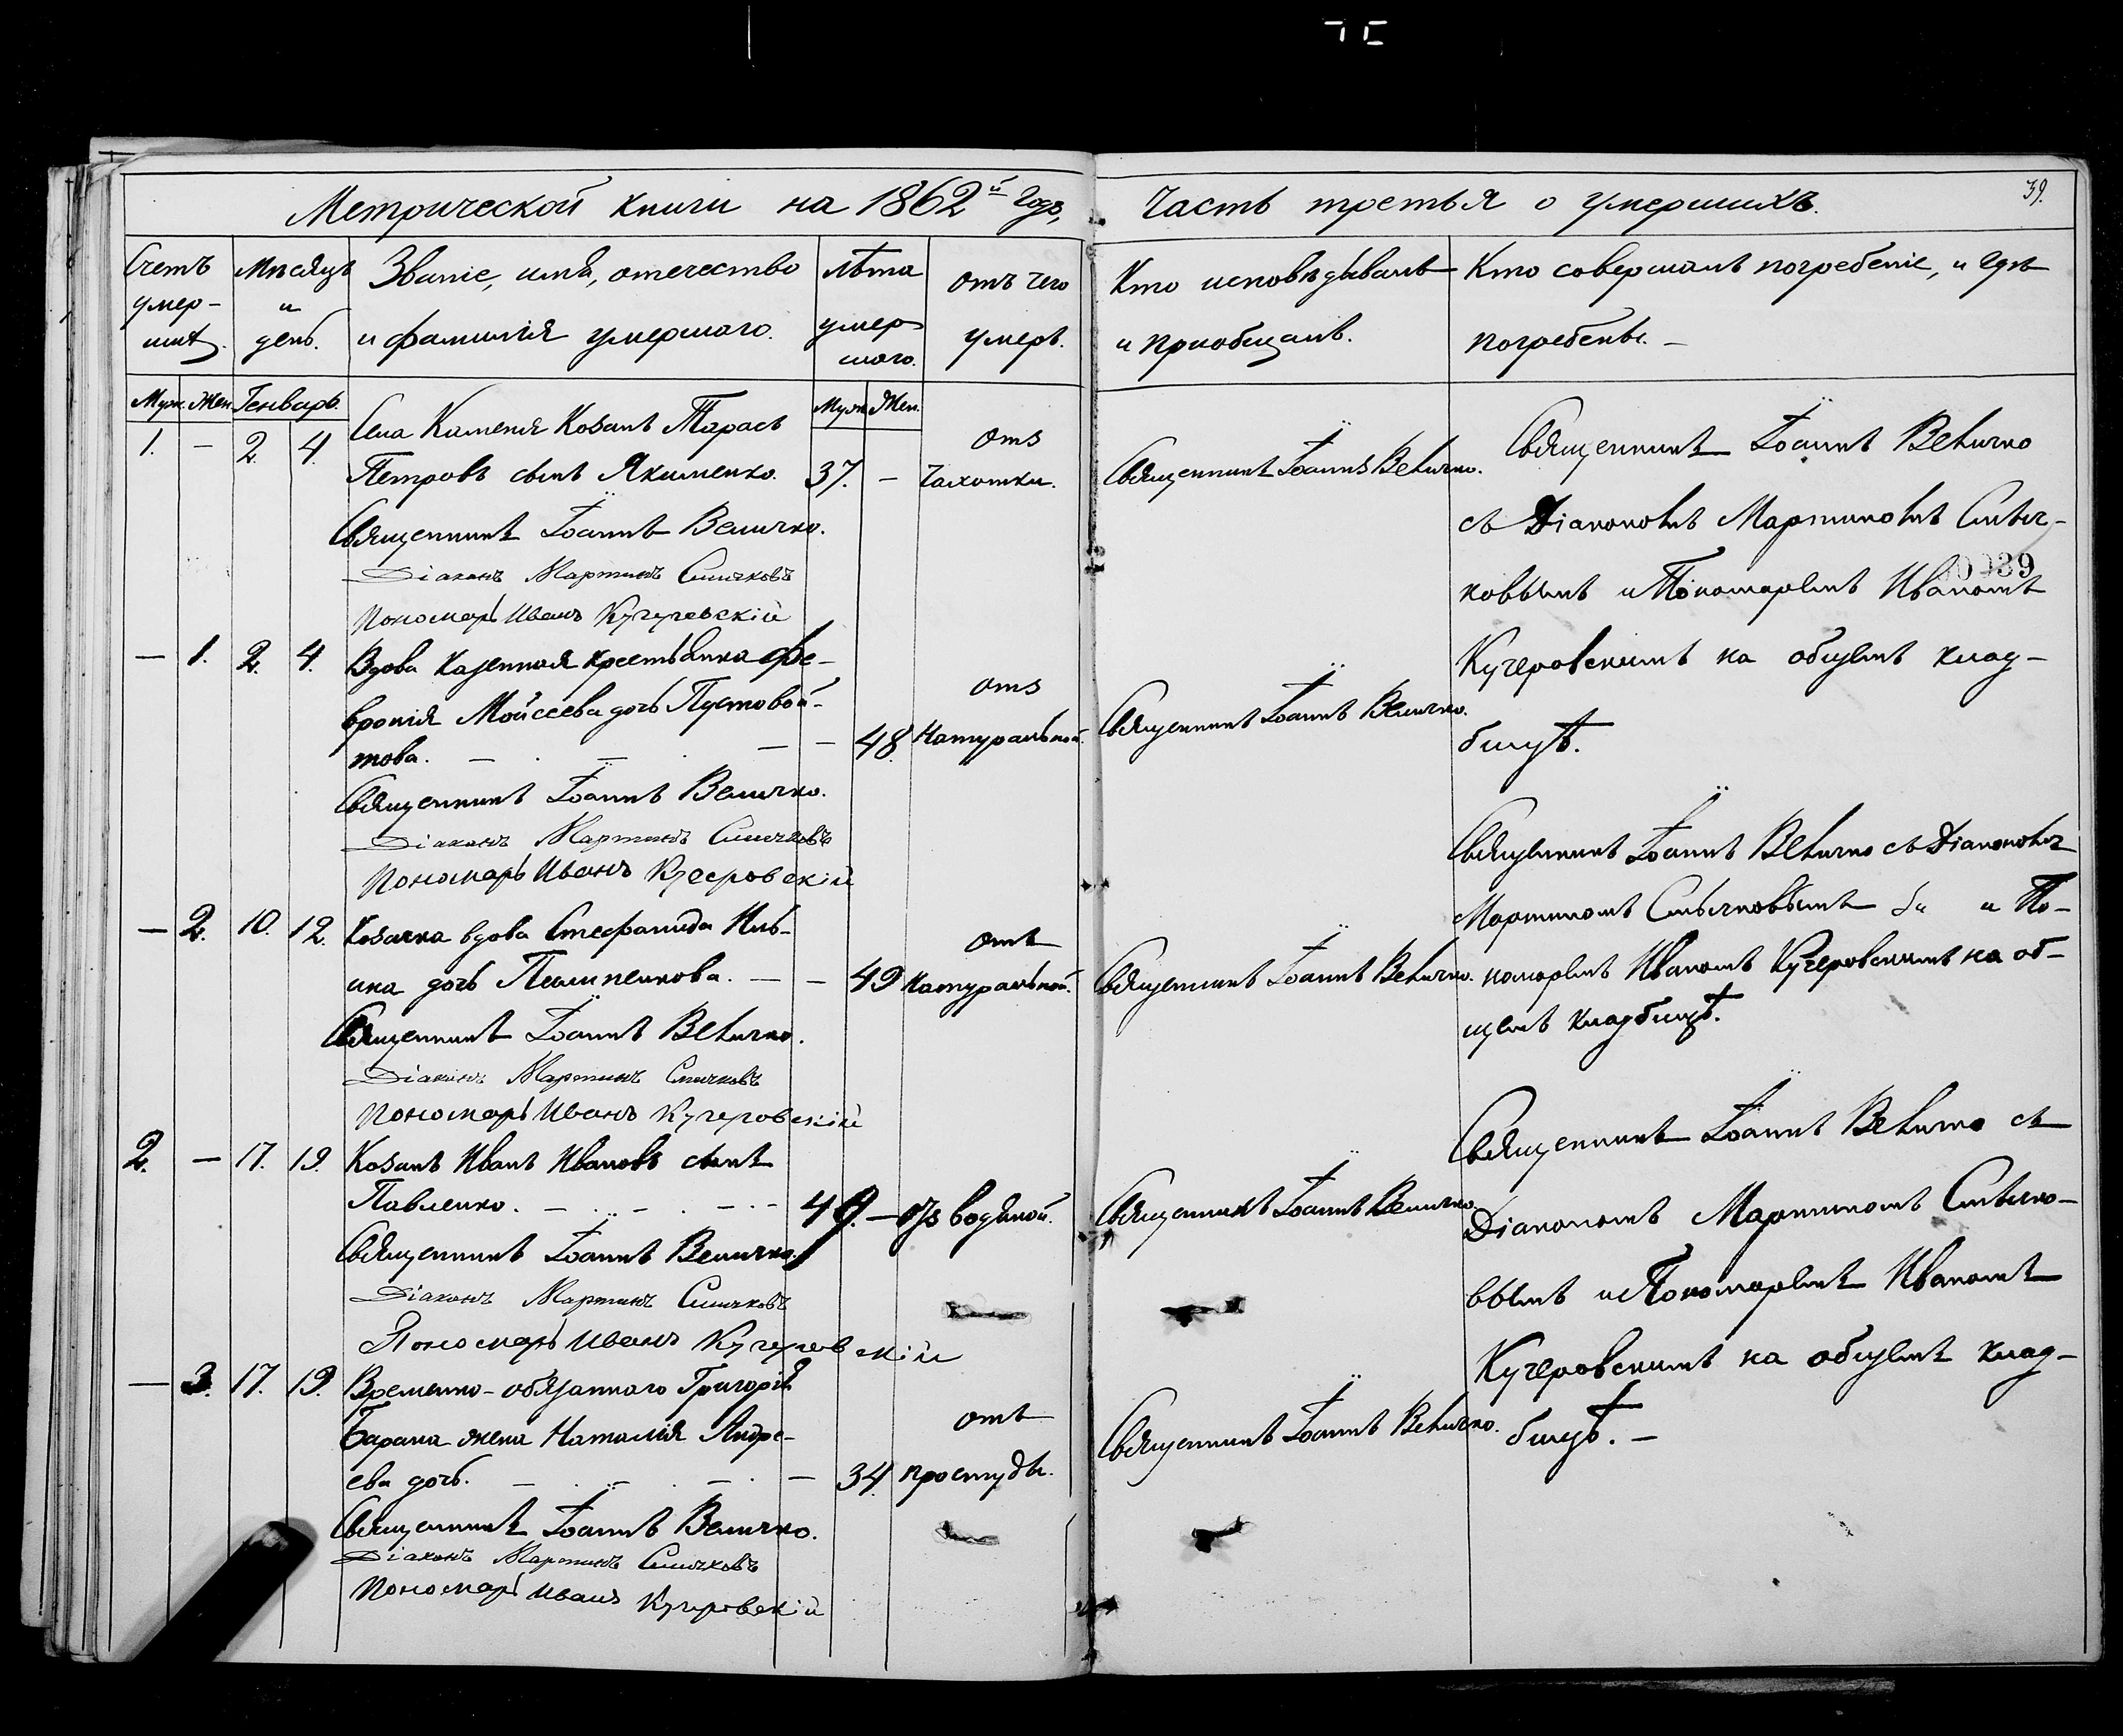 Метрической книги на 1862й Годъ,
Часть третья о умершихъ.
39.
Счетъ умер-шихъ.
Мѣсяцъ и день.
Званіе, имя, отечество
и фамилія умершаго.
Лѣта умер-шаго.
отъ чего умеръ.
Кто исповѣдывалъ
и пріобщалъ.
Кто совершалъ погребеніе, и гдѣ
погребены. –
Муж. Жен. Генварь. Муж. Жен.
1. – 2. 4. Села Каменя Козакъ Тарасъ
Петровъ сынъ Якименко. 37. – отъ Чахотки.
Священникъ Іоаннъ Величко.
Діаконъ Мартинъ Смичковъ
Пономарь Иванъ Кучеровскій
Священникъ Іоаннъ Величко.
Священникъ Іоаннъ Величко
съ Діакономъ Мартиномъ Смыч-
ковымъ и Пономаремъ Иваномъ
00039
Кучеровскимъ на общемъ клад-
бищѣ.
– 1. 2. 4. Вдова казенная крестьянка Фе-
вронія Мойсеева дочь Пустовой-
това. – – – – 48. отъ Натуральной.
Священникъ Іоаннъ Величко.
Діаконъ Мартинъ Смичковъ
Пономарь Иванъ Кучеровскій
Священникъ Іоаннъ Величко.
Священникъ Іоаннъ Величко съ Діакономъ
Мартиномъ Смычковымъ и По-
номаремъ Иваномъ Кучеровскимъ на об-
щемъ кладбищѣ.
– 2. 10. 12. Козачка вдова Стефанида
дочь – – 49 отъ Натуральной.
Священникъ Іоаннъ Величко.
Діаконъ Мартинъ Смичковъ
Пономарь Иванъ Кучеровскій
Священникъ Іоаннъ Величко.
2. – 17. 19. Козакъ Иванъ Ивановъ сынъ
Павленко. – – – 49. – отъ водяной.
Священникъ Іоаннъ Величко.
Діаконъ Мартинъ Смичковъ
Пономарь Иванъ Кучеровскій
Священникъ Іоаннъ Величко.
Священникъ Іоаннъ Величко съ
Діакономъ Мартиномъ Смычко-
вымъ и Пономаремъ Иваномъ
Кучеровскимъ на общемъ клад-
бищѣ. –
– 3. 17. 19. Временно-обязаннаго Григорія
Барана жена Наталія Андре-
ева дочь. – – – – 34. отъ простуды.
Священникъ Іоаннъ Величко.
Діаконъ Мартинъ Смичковъ
Пономарь Иванъ Кучеровскій
Священникъ Іоаннъ Величко.